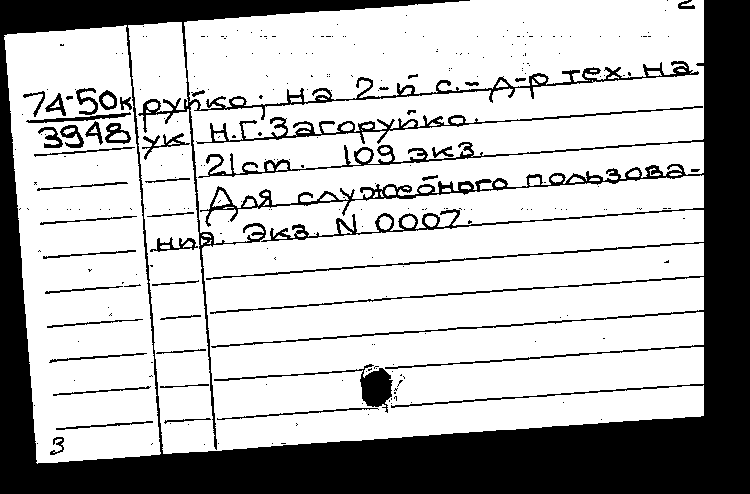 2
74-50к руйко; на 2-й с.- д-р тех. на-
3948 ук Н.Г.Загоруйко.
21 ст. 109 экз.
Для служебного пользова-
ния. Экз. N 0007.
3